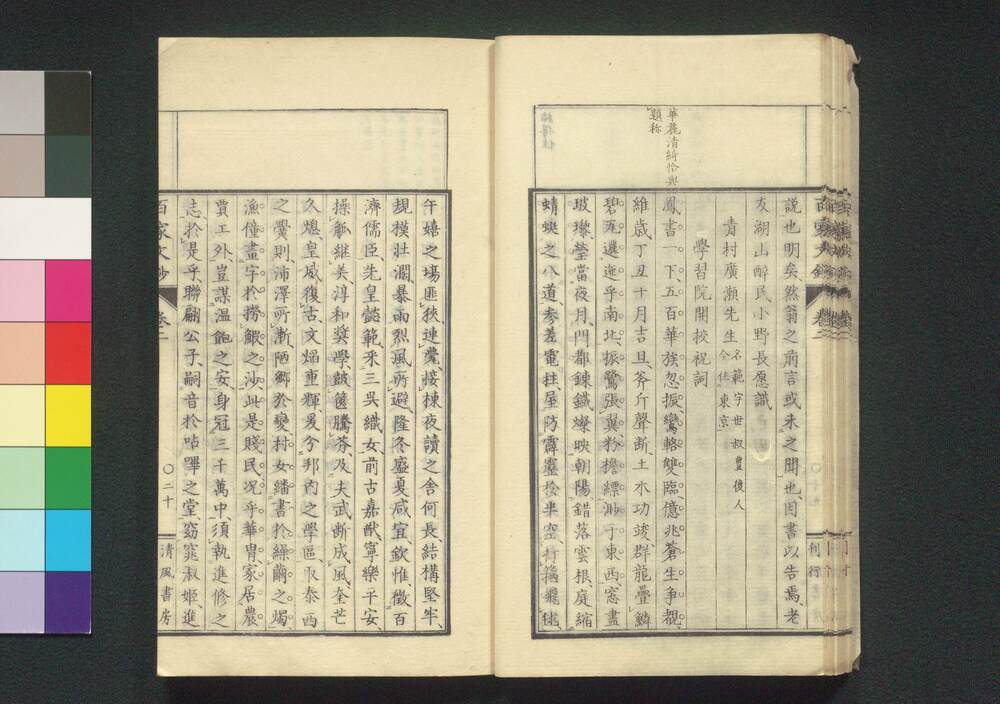 華麗清綺恰與
題称
説也明矣、然翁之前言或未之聞也、因書以告焉、老
友湖山醉民小野長愿識
青村廣瀬先生 名範字世叔豊後人
今住東京
學習院開校祝詞
鳳書一下、五百華族忽振、鸞輅雙臨、億兆蒼生争覩、
維歳丁丑十月吉旦、斧斤聲断、土木功竣、群龍疊鱗
碧瓦邐迤乎南北、振鷺張翼粉檐縹渺于東西、窓畫
玻瓈、瑩當夜月、門鄰錬鐵、燦映朝陽、錯落雲根、庭縮
蜻蛺之八道、参差電柱、屋防霹靂於半空、
午嬉之場匪狹、連甍接棟夜讀之舎何長、結構堅牢、
規模壮濶、暴雨烈風所避、隆冬盛夏咸宜、欽惟、徴百
濟儒臣、先皇懿範、釆三呉織女、前古嘉猷、寧樂平安、
操觚継美、淳和奬學、皷篋騰芬、及夫武断成風、奎芒
久熄、皇威復古、文焔重輝、爰分邦内之學區、収泰西
之黌則、沛澤所漸、陋郷於變、村女繙書於繰繭之燭、
漁僮畫字於撈鰕之沙、此是賤民、况乎華冑、家居農
賈工外、豈謀温飽之安、身冠三千萬中、須執進修之
志、於是乎、聯翩公子、嗣音於呫嗶之堂、窈窕淑姫、進
百家文鈔
卷二
〇二十
清風書房